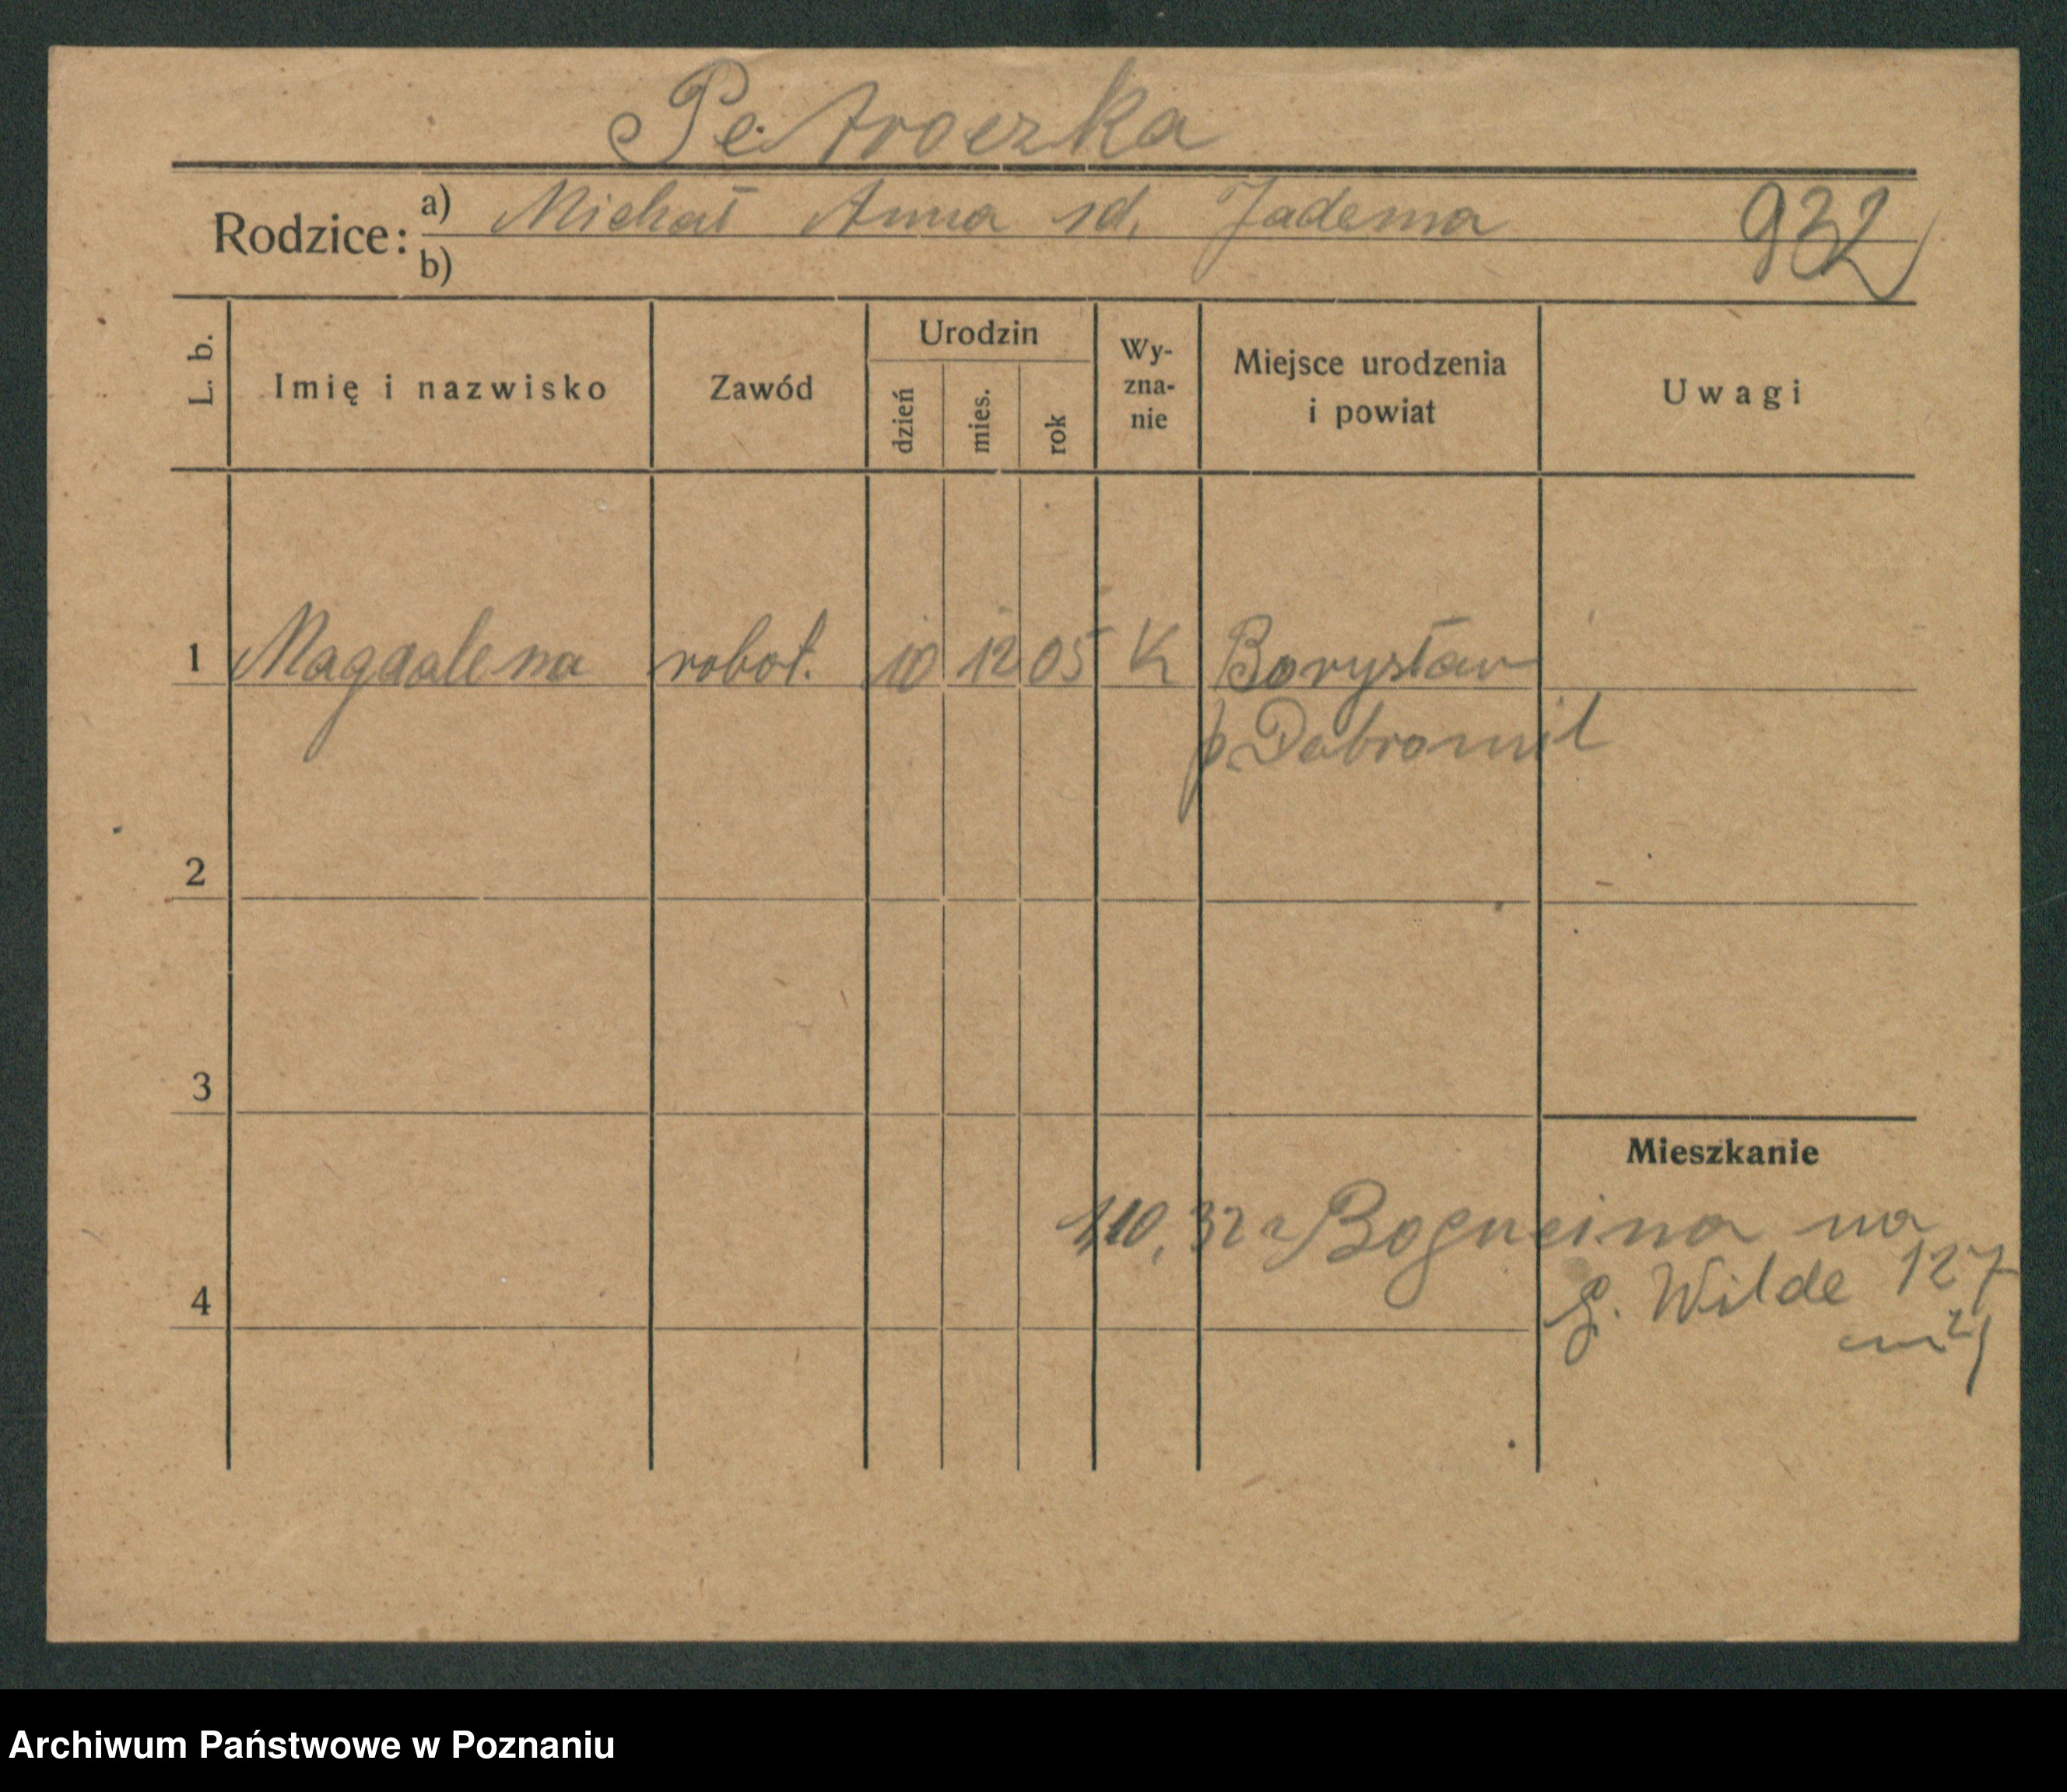 Petroczka
Rodzice: a) Michał Anna zd. Jadema 932
b)
L. b. Imię i nazwisko Zawód Urodzin dzień mies. rok Wy-zna-nie Miejsce urodzenia i powiat Uwagi
1 Magdalena robot. 10 12 05 K Borysław
p Dobromil
2
3
Mieszkanie
1.10.32 z Bogucina na
4 G. Wilde 127
m 21
Archiwum Państwowe w Poznaniu